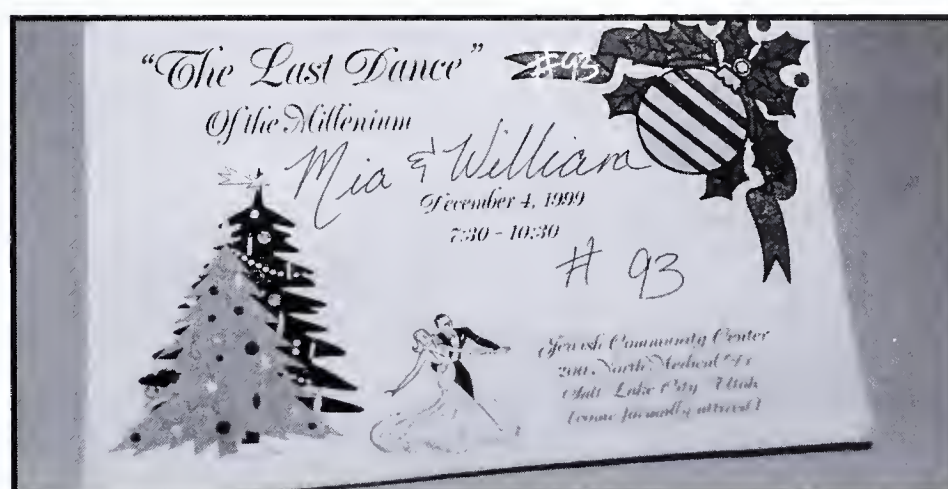 "The Last Dance" #93
Of the Millenium
Mia & William
December 4, 1999
7:30 - 10:30
# 93
Jewish Community Center
200 North Medical
Salt Lake City Utah
(come formally attired)